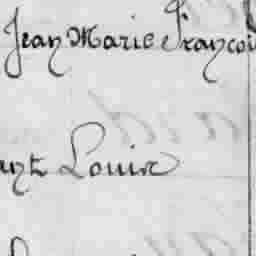 Jean Marie Françoi
Louise